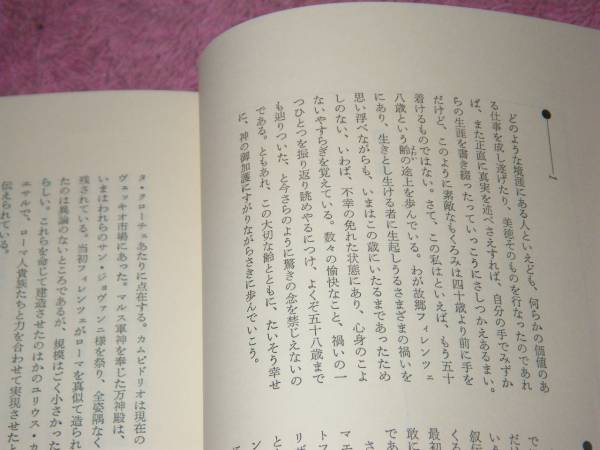 1
どのような境涯にある人といえども、何らかの価値のあ
る仕事を成し遂げたり、美徳そのものを行なったのであれ
ば、また正直に真実を述べさえすれば、自分の手でみずか
らの生涯を書き綴ったっていっこうにさしつかえあるまい。
だけど、このように素敵なもくろみは四十歳より前に手を
着けるものではない。さて、この私はといえば、もう五十
八歳という齢の途上を歩んでいる。わが故郷フィレンツェ
にあり、生きとし生ける者に生起しうるさまざまの禍いを
思い浮べながらも、いまはこの歳にいたるまであったため
しのない、いわば、不幸の免れた状態にあり、心身のこよ
ないやすらぎを覚えている。数々の愉快なこと、禍いの一
つひとつを振り返り眺めやるにつけ、よくぞ五十八歳まで
も辿りついた、と今さらのように驚きの念を禁じえないの
である。ともあれ、この大切な齢とともに、たいそう幸せ
に、神の御加護にすがりながらさきに歩んでいこう。
タ・クローチェあたりに点在する。カムピドリオは現在の
ヴェッキオ市場にあった。マルス軍神を奉じた万神殿は、
いまはわれらのサン・ジョヴァンニ様を祭り、全姿隅なく
残されている。当初フィレンツェがローマを真似て造られ
たのは異論のないところであるが、規模はごく小さかった
らしい。これらを命じて建造させたのはかのユリウス・カ
エサルで、ローマ人貴族たちと力を合わせて実現させたと
伝えられている。